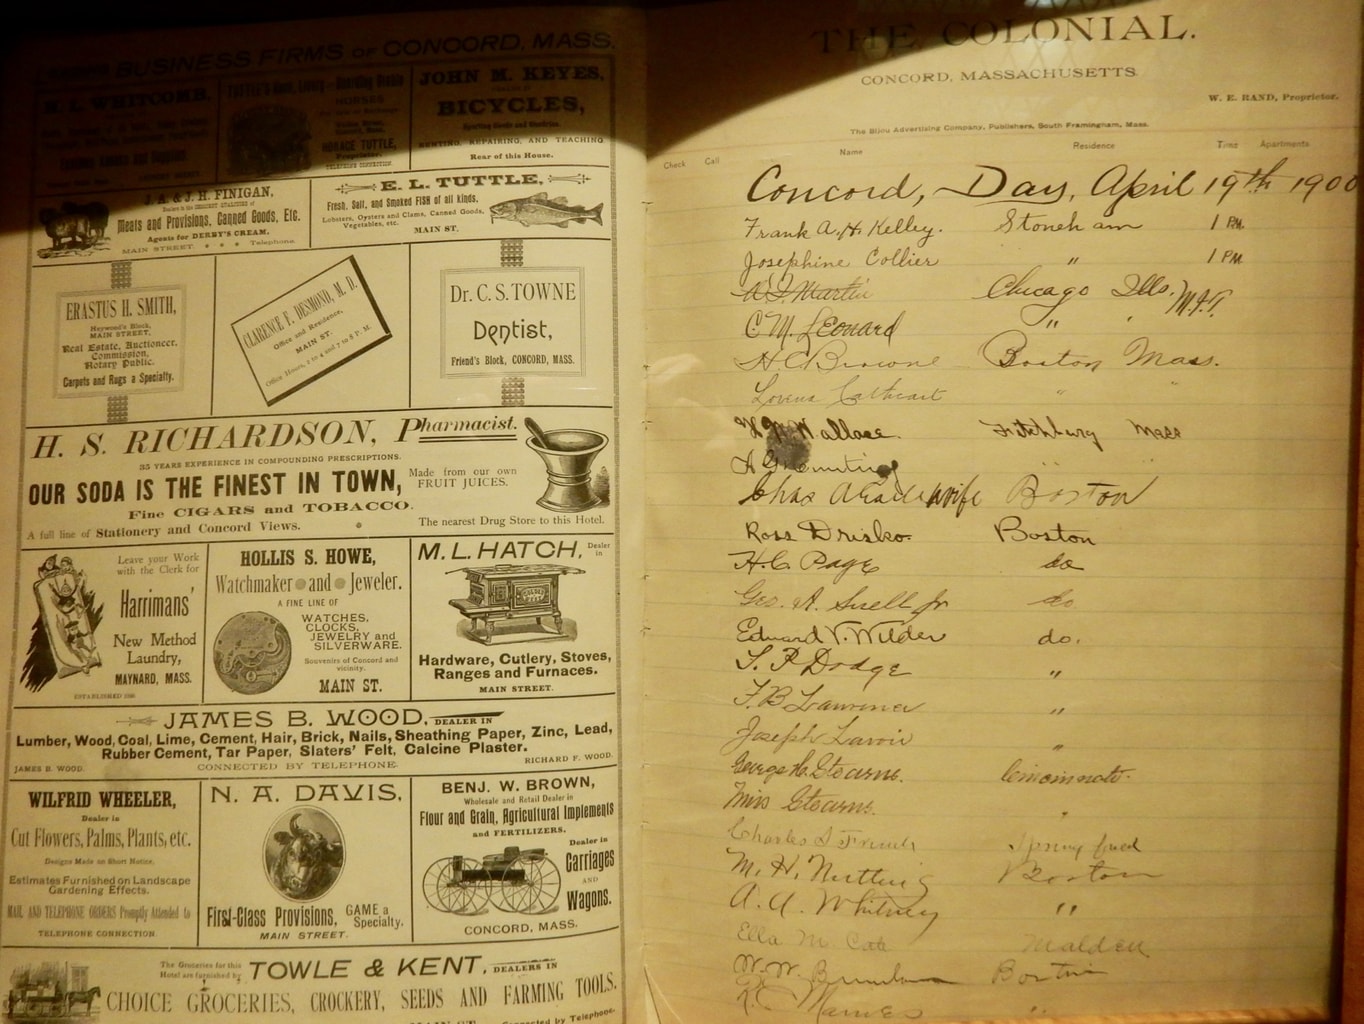 BUSINESS FIRMS OF CONCORD, MASS.
H. L. WHITCOMB,
TUTTLE'S
HORSES
HORACE TUTTLE,
TELEPHONE CONNECTION.
JOHN M. KEYES,
BICYCLES,
Sporting Goods and Sundries.
RENTING, REPAIRING, AND TEACHING
Rear of this House.
J. A. & J. H. FINIGAN,
Dealers in the CHOICEST QUALITIES of
Meats and Provisions, Canned Goods, Etc.
Agents for DERBY'S CREAM.
MAIN STREET. Telephone.
E. L. TUTTLE,
Fresh, Salt, and Smoked FISH of all kinds,
Lobsters, Oysters and Clams, Canned Goods,
Vegetables, etc.
MAIN ST.
ERASTUS H. SMITH,
Heywood's Block,
MAIN STREET,
Real Estate, Auctioneer,
Commission,
Notary Public.
Carpets and Rugs a Specialty.
CLARENCE F. DESMOND, M. D.
Office and Residence,
MAIN ST.
Office Hours, 1 to 4 and 7 to 8 P. M.
Dr. C. S. TOWNE
Dentist,
Friend's Block, CONCORD, MASS.
H. S. RICHARDSON, Pharmacist.
35 YEARS EXPERIENCE IN COMPOUNDING PRESCRIPTIONS.
OUR SODA IS THE FINEST IN TOWN,
Made from our own
FRUIT JUICES.
Fine CIGARS and TOBACCO.
A full line of Stationery and Concord Views.
The nearest Drug Store to this Hotel.
Leave your Work
with the Clerk for
Harrimans'
New Method
Laundry,
MAYNARD, MASS.
HOLLIS S. HOWE,
Watchmaker and Jeweler.
A FINE LINE OF
WATCHES,
CLOCKS,
JEWELRY and
SILVERWARE.
Souvenirs of Concord and
vicinity.
MAIN ST.
M. L. HATCH, Dealer in
Hardware, Cutlery, Stoves,
Ranges and Furnaces.
MAIN STREET.
JAMES B. WOOD, DEALER IN
Lumber, Wood, Coal, Lime, Cement, Hair, Brick, Nails, Sheathing Paper, Zinc, Lead,
Rubber Cement, Tar Paper, Slaters' Felt, Calcine Plaster.
JAMES B. WOOD. CONNECTED BY TELEPHONE. RICHARD F. WOOD.
WILFRID WHEELER,
Dealer in
Cut Flowers, Palms, Plants, etc.
Designs Made on Short Notice.
Estimates Furnished on Landscape
Gardening Effects.
MAIL AND TELEPHONE ORDERS Promptly Attended to
TELEPHONE CONNECTION
N. A. DAVIS,
First-Class Provisions, GAME a Specialty.
MAIN STREET.
BENJ. W. BROWN,
Wholesale and Retail Dealer in
Flour and Grain, Agricultural Implements
and FERTILIZERS.
Dealer in
Carriages
AND
Wagons.
CONCORD, MASS.
The Groceries for this
Hotel are furnished by
TOWLE & KENT, DEALERS IN
CHOICE GROCERIES, CROCKERY, SEEDS AND FARMING TOOLS.
MAIN ST. Connected by Telephone.
THE COLONIAL.
CONCORD, MASSACHUSETTS.
W. E. RAND, Proprietor.
The Bijou Advertising Company, Publishers, South Framingham, Mass.
Check Call Name Residence Time Apartments
Concord, Day, April 19th 1900
Frank A. H. Kelley. Stoneham 1 PM.
Josephine Collier " 1 PM
Martin Chicago Ills. M.I.T.
C. M. Leonard " "
H. C. Browne Boston Mass.
Lorena Cathcart " "
Wallace Fitchburg Mass
Chas wife Boston
Ross Drisko. Boston
H. C. Page do
Geo. A. Snell Jr do
Edward V. Wilder do.
Dodge "
F. B. Lawrence "
Joseph "
George H. Stearns. Cincinnati.
Miss Stearns. "
Charles Springfield
M. H. Nutting Boston
A. A. Whitney "
Ella M. Cate Malden
W. W. Boston
"